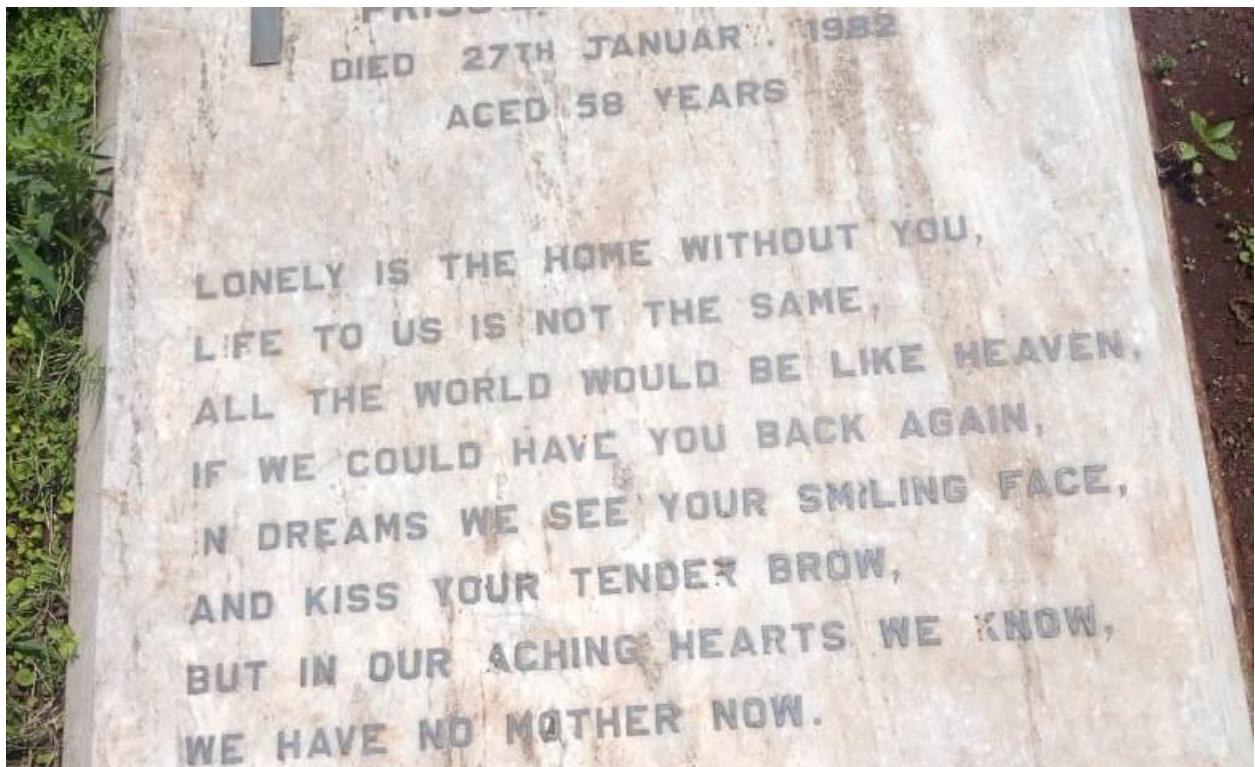 DIED 27TH JANUAR . 1982
AGED 58 YEARS
LONELY IS THE HOME WITHOUT YOU,
LIFE TO US IS NOT THE SAME,
ALL THE WORLD WOULD BE LIKE HEAVEN,
IF WE COULD HAVE YOU BACK AGAIN,
IN DREAMS WE SEE YOUR SMILING FACE,
AND KISS YOUR TENDER BROW,
BUT IN OUR ACHING HEARTS WE KNOW,
WE HAVE NO MOTHER NOW.